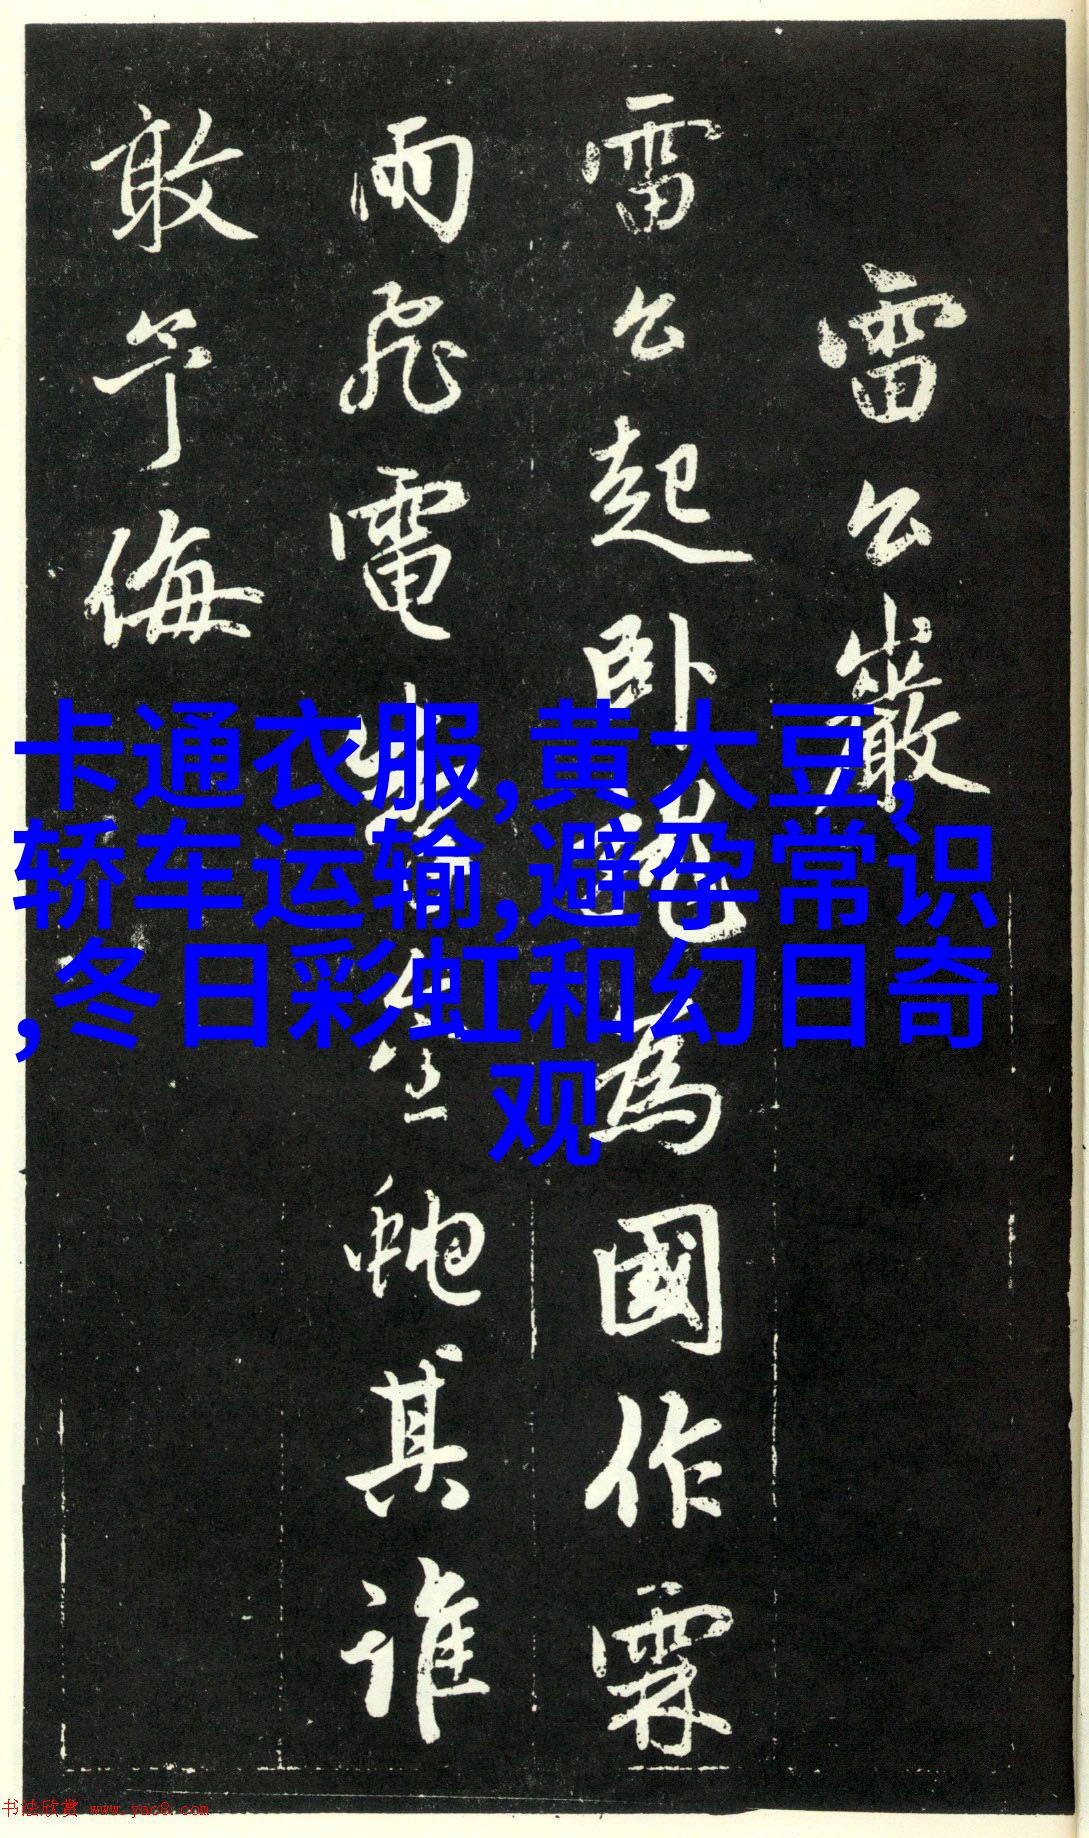 雷公巖
雷公起卧為國作霖
雨飛電虵其誰
敢予侮
卡通衣服,黄大豆,
轿车运输,避孕常识
,冬日彩虹和幻日奇
观
书法欣赏 www.yac8.com